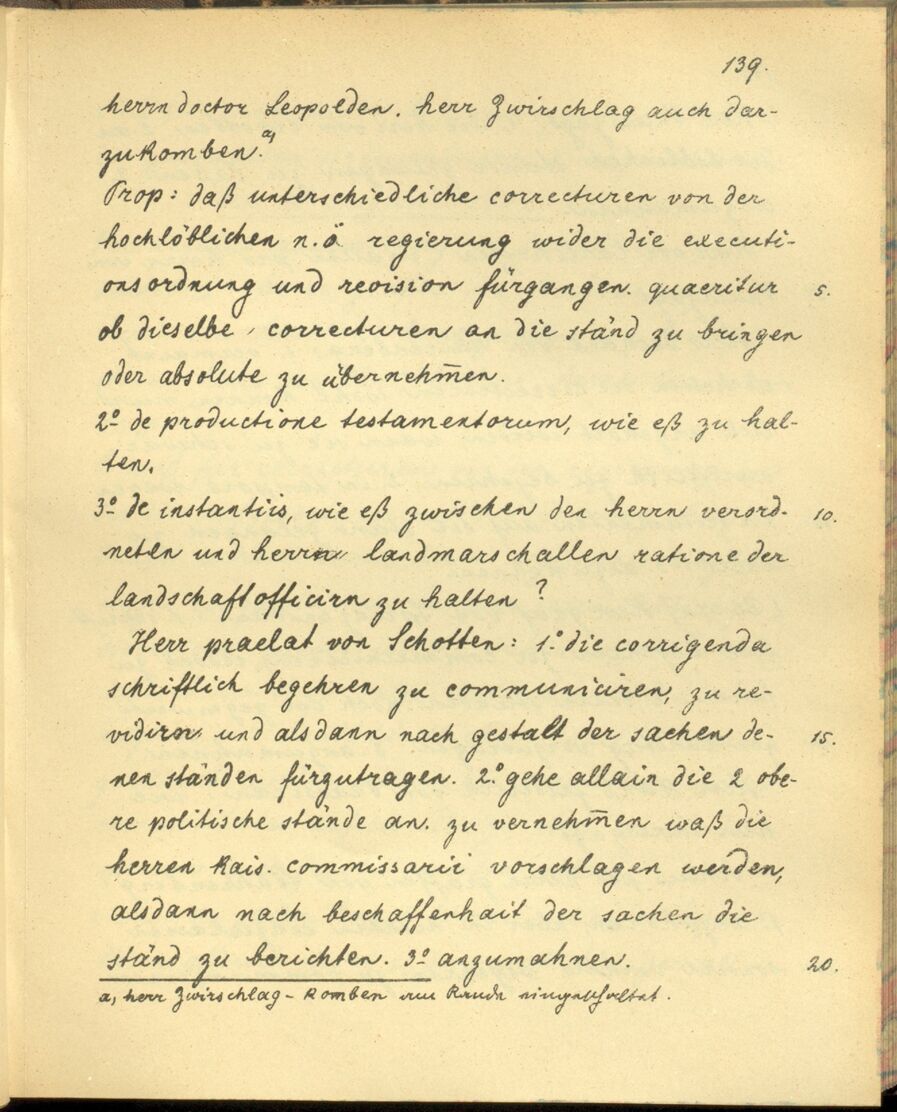 139.
herrn doctor Leopolden. herr Zwirschlag auch dar-
zukomben.a)
Prop: daß unterschiedliche correcturen von der
hochlöblichen n.ö regierung wider die executi-
onsordnung und revision fürgangen. quaeritur 5.
ob dieselbe correcturen an die ständ zu bringen
oder absolute zu übernehm̄en.
2º de productione testamentorum, wie eß zu hal-
ten.
3º de instantiis, wie eß zwischen den herrn verord- 10.
neten und herrn landmarschallen ratione der
landschaftofficirn zu halten?
Herr praelat von Schotten: 1.º die corrigenda
schriftlich begehren zu communiciren, zu re-
vidirn und alsdann nach gestalt der sachen de- 15.
nen ständen fürzutragen. 2.º gehe allain die 2 obe-
re politische stände an. zu vernehm̄en waß die
herren kais. commissarii vorschlagen werden,
alsdann nach beschaffenhait der sachen die
ständ zu berichten. 3º anzumahnen. 20.
a, herr Zwirschlag - komben am Rande eingeschaltet.